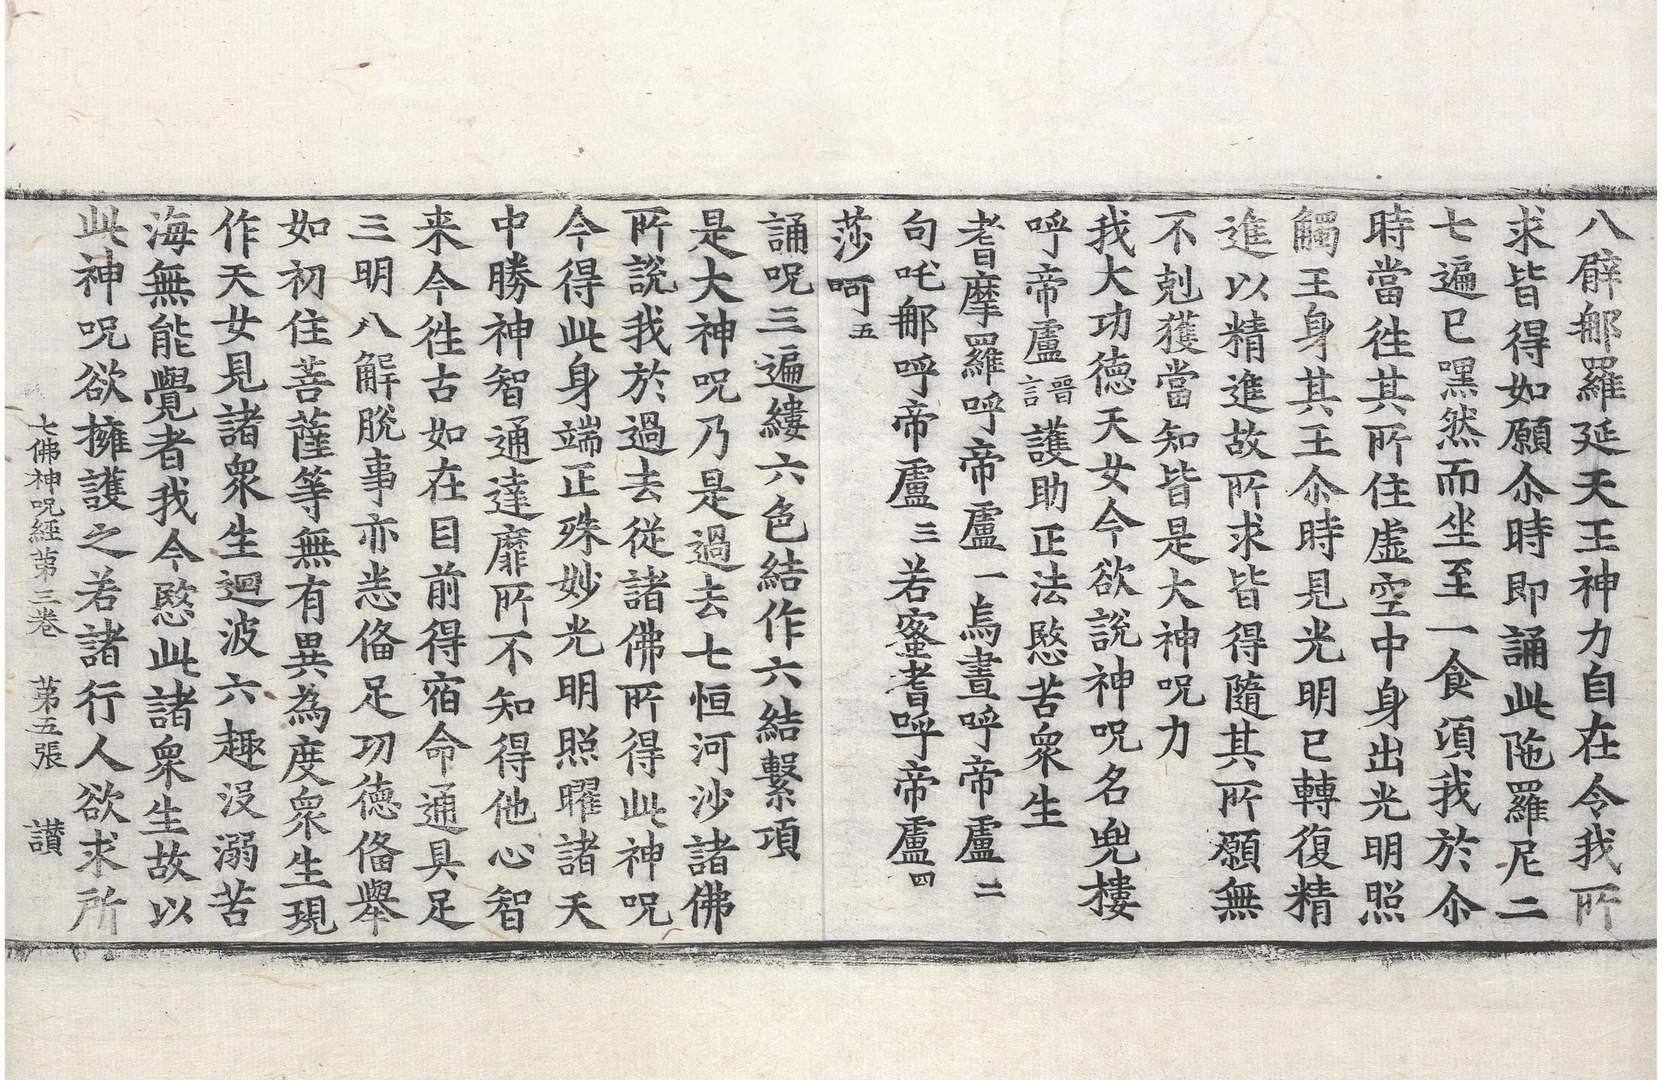 八臂那羅延天王神力自在令我所
求皆得如願尒時即誦此陁羅尼二
七遍已嘿然而坐至一食湏我於尒
時當徃其所住虛空中身出光明照
觸王身其王尒時見光明已轉復精
進以精進故所求皆得隨其所願無
不剋獲當知皆是大神呪力
我大功德天女今欲說神呪名兜樓
呼帝盧晉言護助正法愍苦衆生
耆摩羅呼帝盧一烏晝呼帝盧二
句吒郍呼帝盧三若蜜耆呼帝盧四
莎呵五
誦呪三遍縷六色結作六結繫項
是大神呪乃是過去七恒河沙諸佛
所說我於過去從諸佛所得此神呪
今得此身端正殊妙光明照曜諸天
中勝神智通達靡所不知得他心智
来今徃古如在目前得宿命通具足
三明八解脫事亦恙俻足功德俻舉
如初住菩薩等無有異為度衆生現
作天女見諸衆生迴波六趣沒溺苦
海無能覺者我今愍此諸衆生故以
此神呪欲擁護之若諸行人欲求所
七佛神呪經苐三卷 苐五張 讃